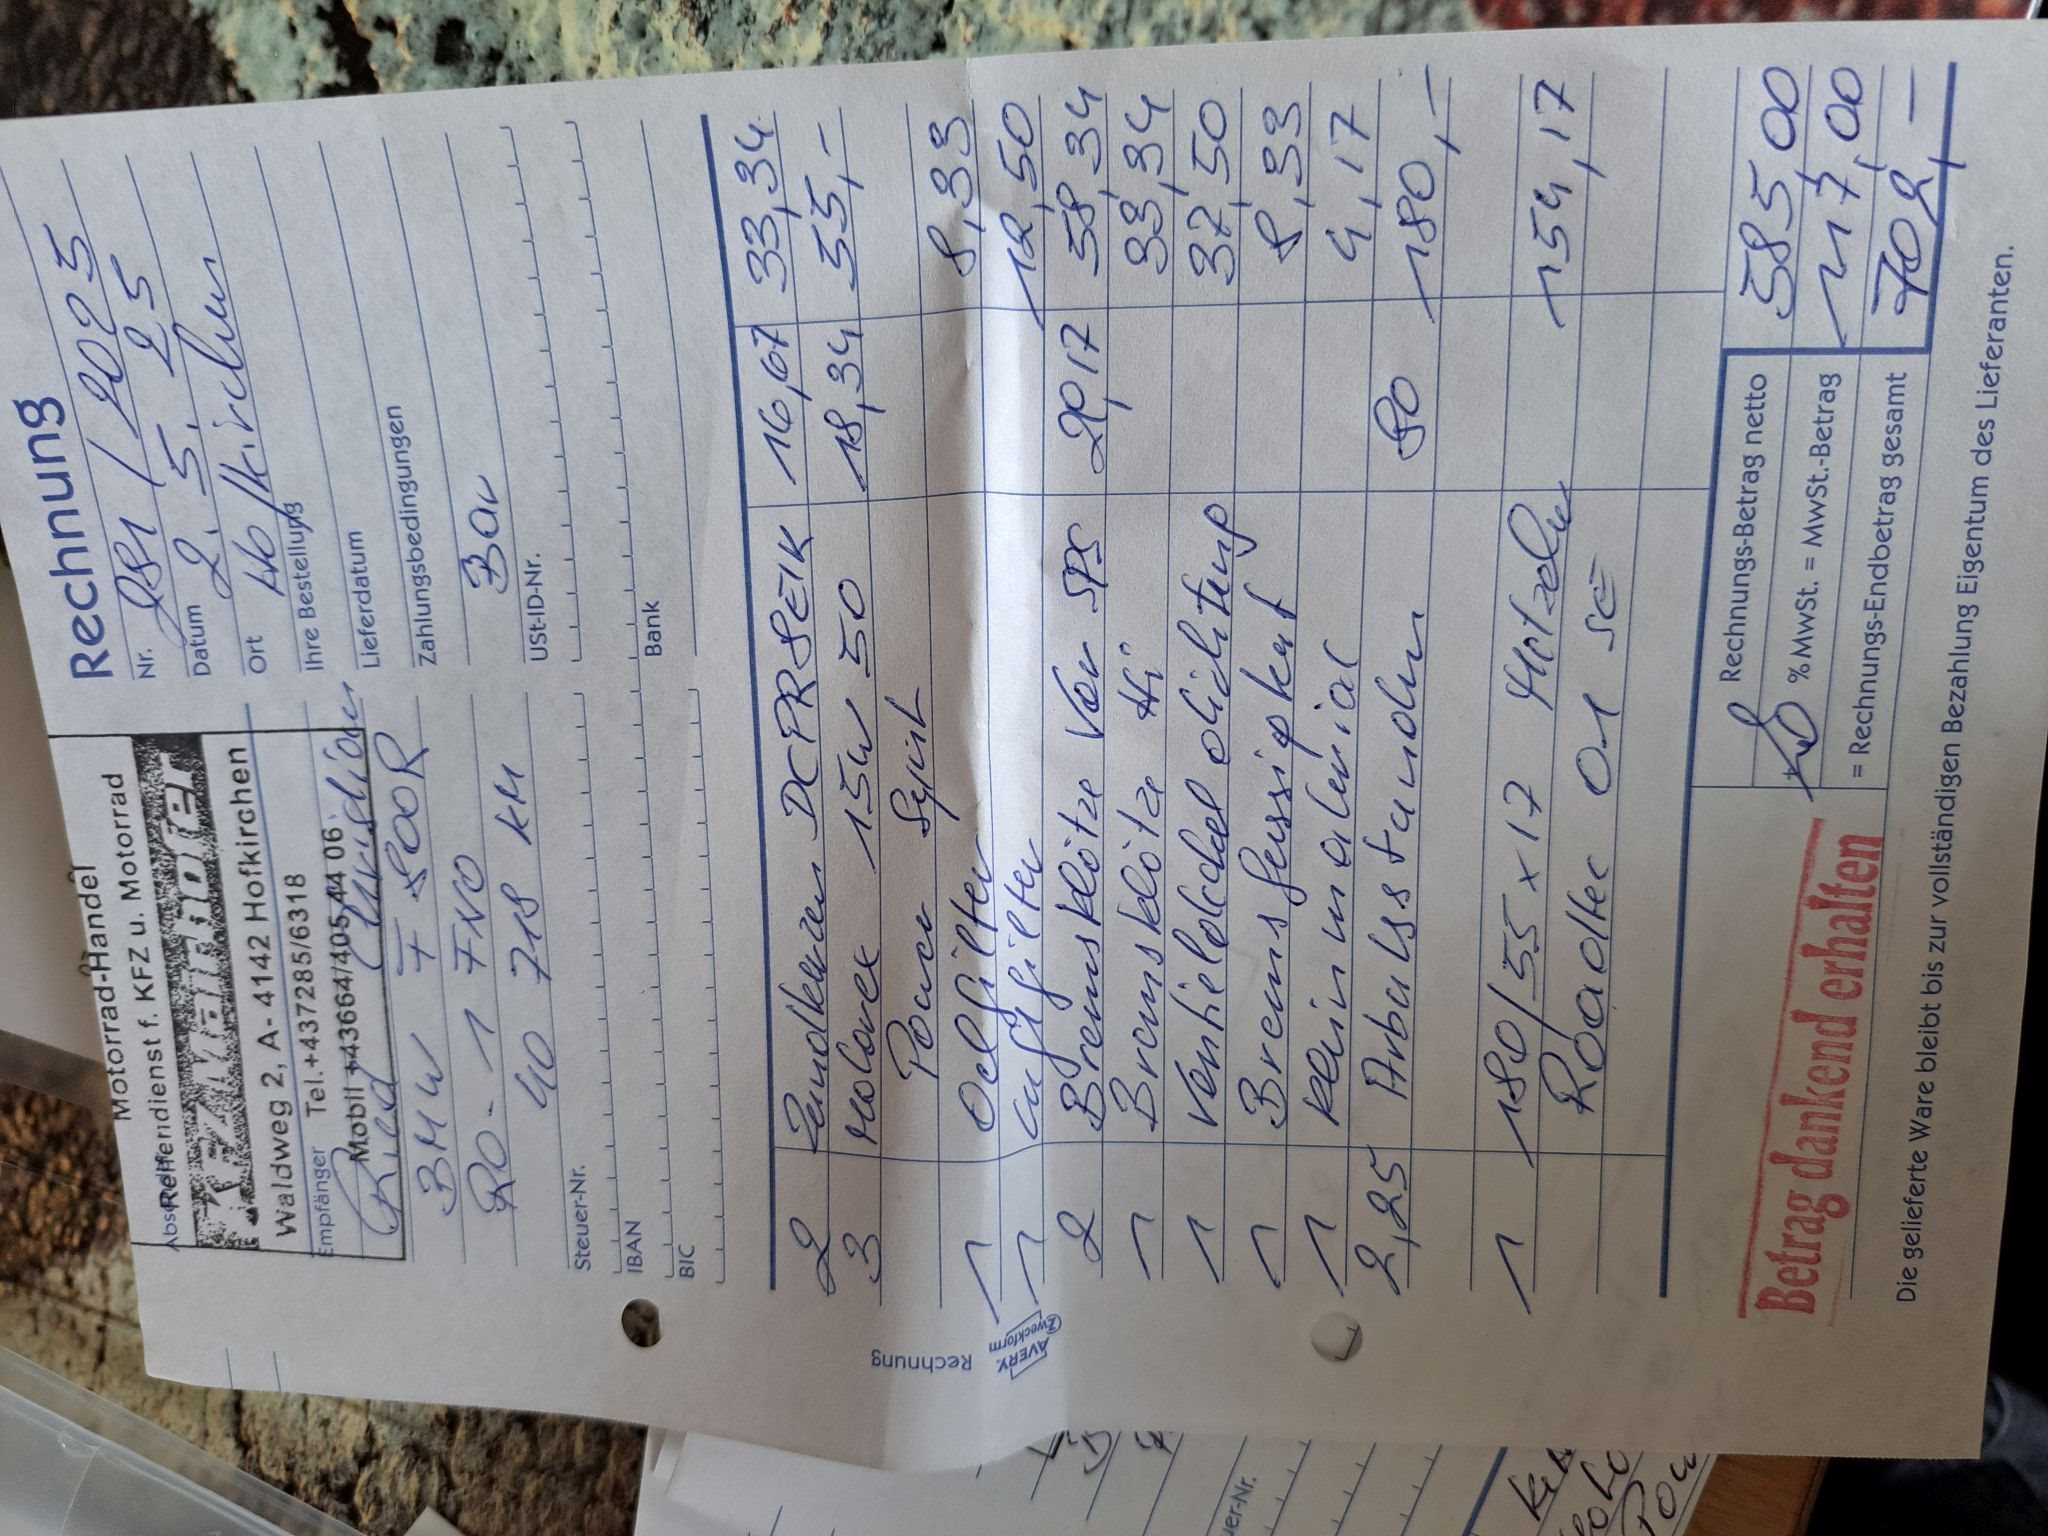 Motorrad-Handel
Reifendienst f. KFZ u. Motorrad
Waldweg 2, A- 4142 Hofkirchen
Empfänger Tel.+437285/6318
Mobil +43664/405 44 06
Ried Christian
BMW F 800R
RO - 1 FNO
40 718 KM
Rechnung
Nr. 281 / 2025
Datum 2. 5. 25
Ort Hofkirchen
Ihre Bestellung
Lieferdatum
Zahlungsbedingungen
Bar
USt-ID-Nr.
Steuer-Nr.
IBAN
BIC
Bank
2 Zündkerzen DCPR8EIK 16,67 33,34
3 Motorex 15W 50 18,34 55,-
Power Synt
1 Oelfilter 8,33
1 Luftfilter 12,50
2 Bremsklötze Vor SPS 29,17 58,34
1 Bremsklötze Hi 33,34
1 Ventieldeckel dichtung 37,50
1 Bremsflussigkeit 8,33
1 Kleinmaterial 4,17
2,25 Arbeitsstunden 80 180,-
1 180/55 x 17 Metzeler 154,17
Roadtec 01 SE
Rechnungs-Betrag netto 585,00
+ 20 % MwSt. = MwSt.-Betrag 117,00
= Rechnungs-Endbetrag gesamt 702,-
Betrag dankend erhalten
Die gelieferte Ware bleibt bis zur vollständigen Bezahlung Eigentum des Lieferanten.
Rechnung
AVERY
Zweckform